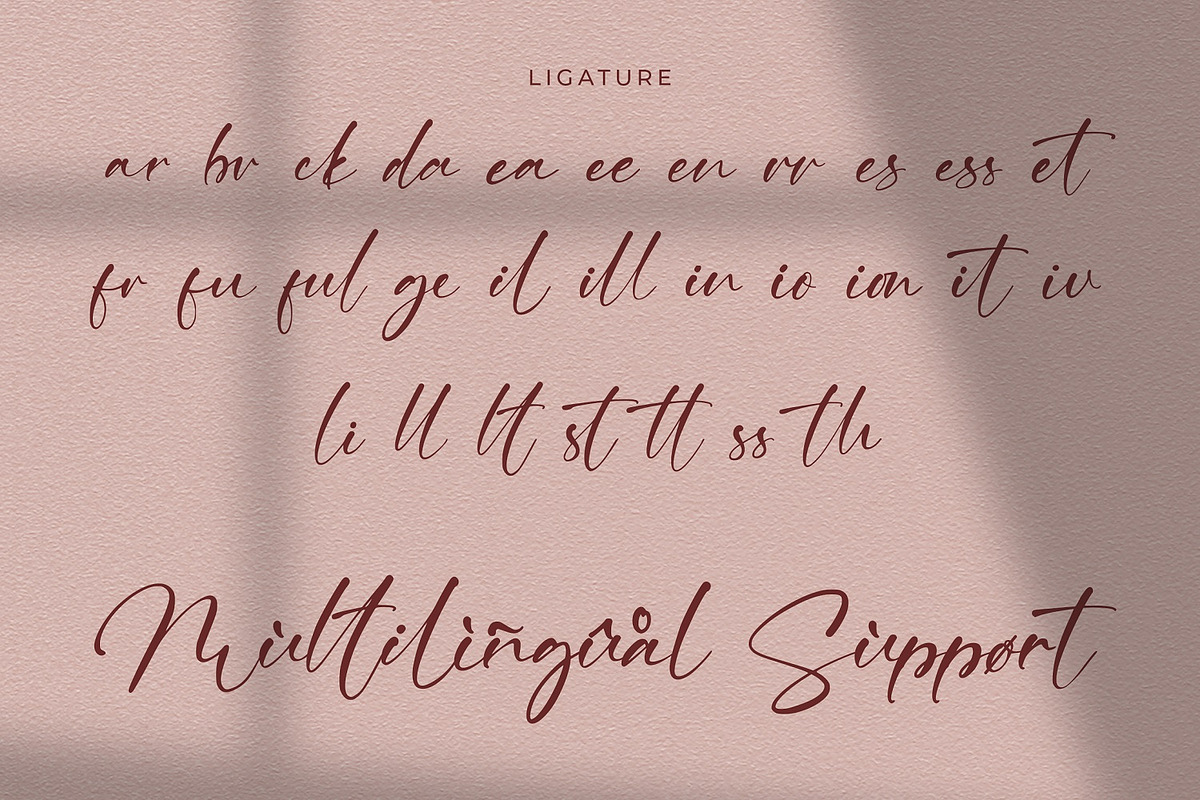 LIGATURE
ar br ck da ea ee en rr er es ess et
fr fu ful ge il ill in io ion it iv
li ll lt st tt ss th
Mùltilìñgûål Sùppørt